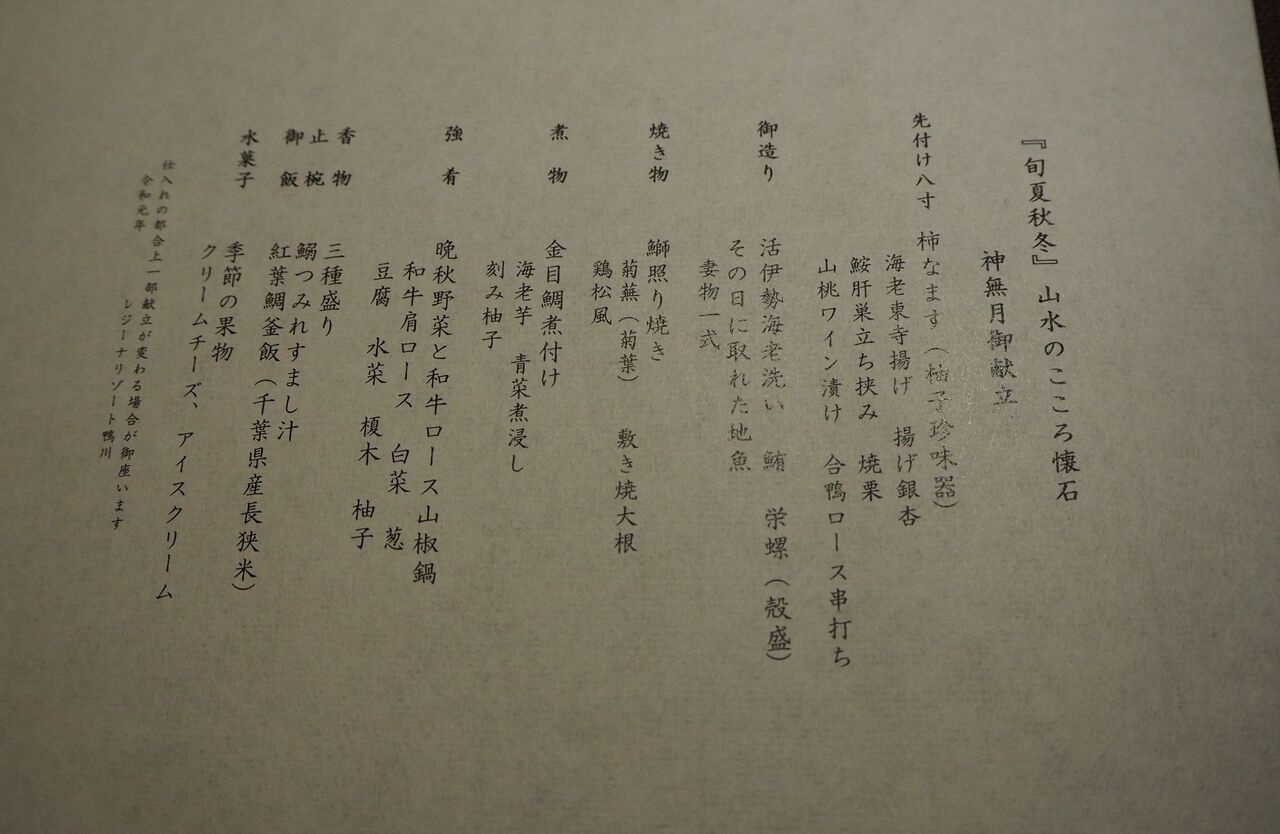 『旬夏秋冬』山水のこころ懐石
神無月御献立
先付け八寸　柿なます（柚子珍味器）
海老東寺揚げ　揚げ銀杏
鮟肝巣立ち挟み　焼栗
山桃ワイン漬け　合鴨ロース串打ち
御造り　活伊勢海老洗い　鮪　栄螺（殻盛）
その日に取れた地魚
妻物一式
焼き物　鰤照り焼き
菊蕪（菊葉）　敷き焼大根
鶏松風
煮物　金目鯛煮付け
海老芋　青菜煮浸し
刻み柚子
強肴　晩秋野菜と和牛ロース山椒鍋
和牛肩ロース　白菜　葱
豆腐　水菜　榎木　柚子
香物　三種盛り
止椀　鰯つみれすまし汁
御飯　紅葉鯛釜飯（千葉県産長狭米）
水菓子　季節の果物
クリームチーズ、アイスクリーム
仕入れの都合上一部献立が変わる場合が御座います
令和元年　レジーナリゾート鴨川